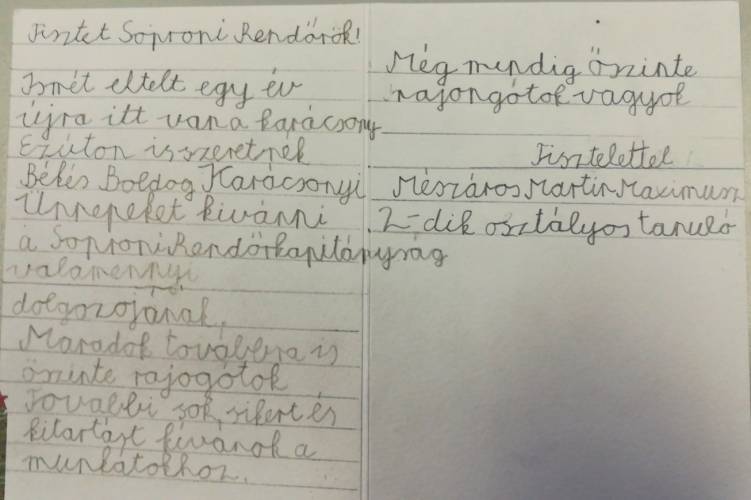 Tisztet Soproni Rendőrök!
Ismét eltelt egy év
újra itt van a karácsony
Ezúton is szeretnék
Békés Boldog Karácsonyi
Ünnepeket kivánni
a Soproni Rendőrkapitányság
valamennyi
dolgozojának,
Maradok továbbra is
őszinte rajogótok
További sok sikert és
kitartást kívánok a
munkátokhoz.
Még mindig őszinte
rajongótok vagyok
Tisztelettel
Mészáros Martin Maximusz
2-dik osztályos tanuló